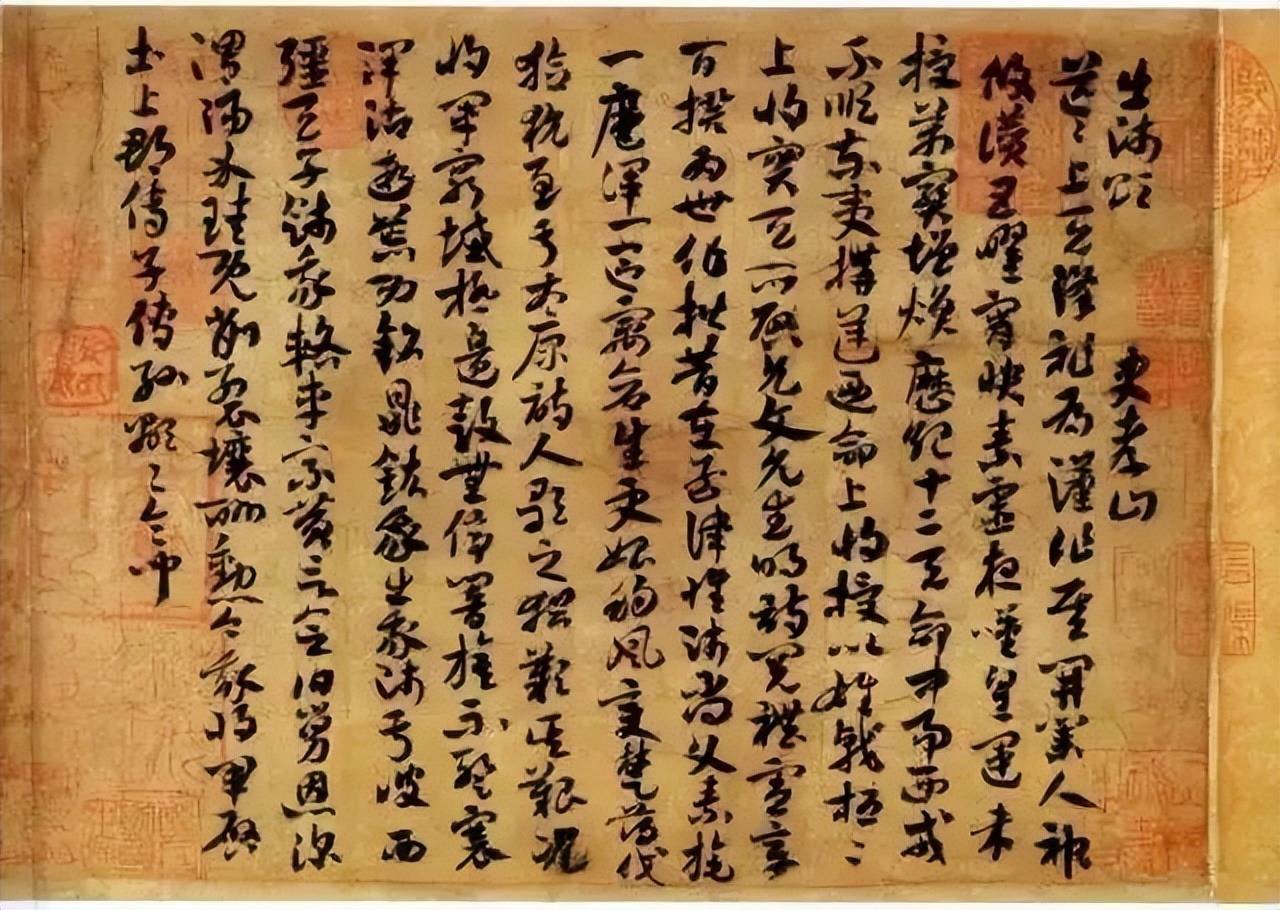 出師頌 史孝山
茫茫上天降祚為漢作基開業人神
攸讚五曜宵映素靈夜歎皇運未
授萬寶增煥歷紀十二天命中易西戎
不順東夷構逆乃命上將授以雄戟桓桓
上將實天所啟允文允武明詩閱禮憲章
百揆為世作楷昔在孟津惟師尚父素旄
一麾渾一區寓蒼生更始朔風變楚薄伐
獫狁至于太原詩人歌之猶歎其艱況我
將軍窮城極邊鼓無停響旗不暫褰
澤沾遐荒功銘鼎鉉我出我師于彼西
疆天子餞我輅車乘黃言念伯舅恩深
渭陽介珪既削裂壤酬勳今我將軍啟
土上郡傳子傳孫顯顯令問